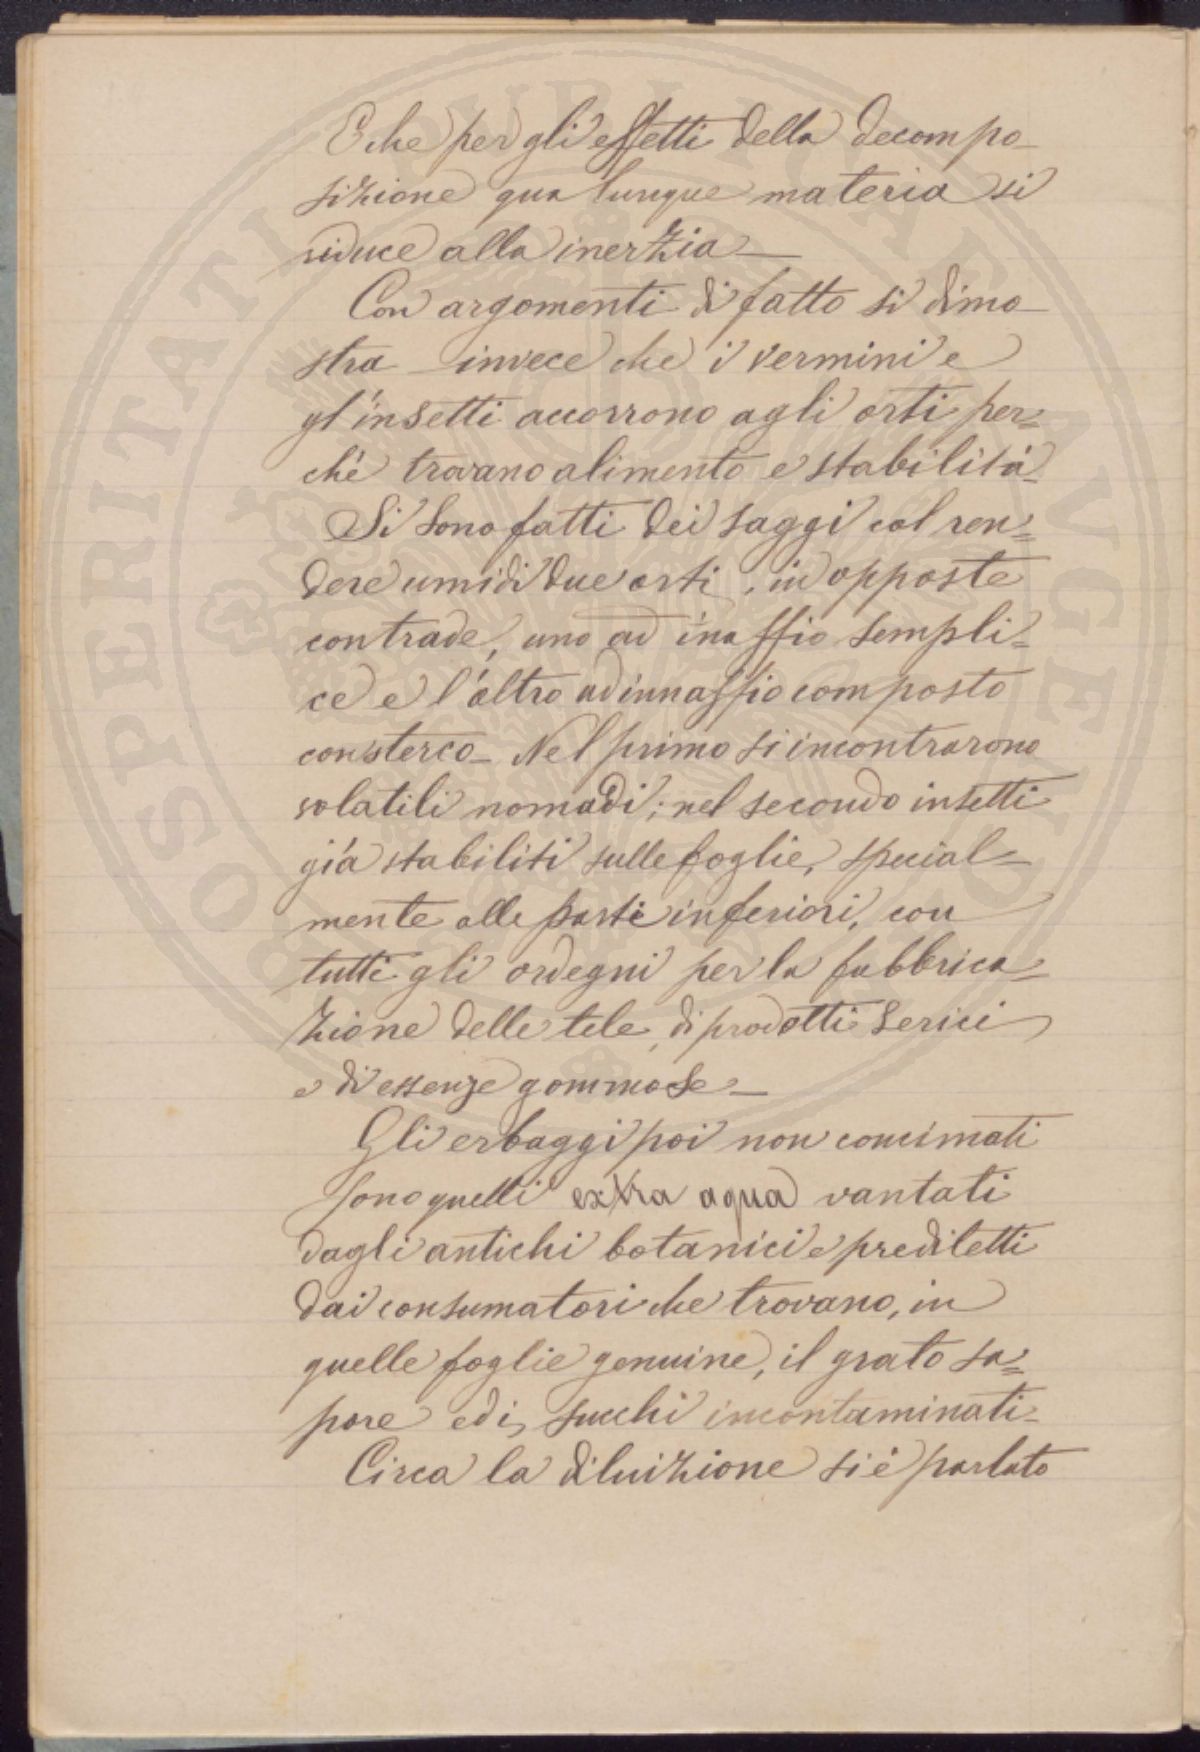 E che per gli effetti della decompo-
sizione qualunque materia si
riduce alla inerzia—
Con argomenti di fatto si dimo-
stra invece che i vermini e
gl'insetti accorrono agli orti per=
chè trovano alimento e stabilità.
Si sono fatti dei saggi col ren=
dere umidi due orti, in opposte
contrade, uno ad inaffio sempli=
ce e l'altro ad innaffio composto
con sterco— Nel primo si incontrarono
volatili nomadi; nel secondo insetti
già stabiliti sulle foglie, special=
mente alle parti inferiori, con
tutti gli ordegni per la fabbrica=
zione delle tele, di prodotti serici
e di essenze gommose—
Gli erbaggi poi non concimati
sono quelli extra aqua vantati
dagli antichi botanici e prediletti
dai consumatori che trovano, in
quelle foglie genuine, il grato sa=
pore ed i succhi incontaminati-
Circa la diluizione si è parlato
SPERITATI PUBLICAE AUGENDAE